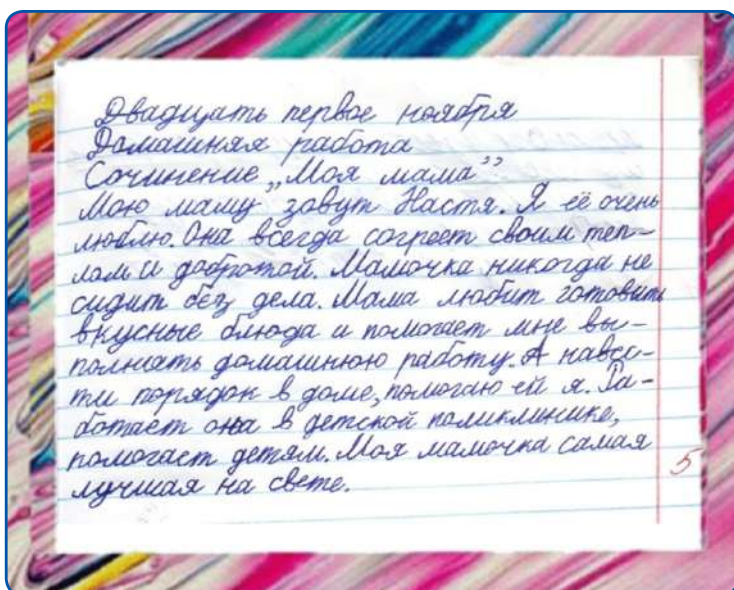 Двадцать первое ноября
Домашняя работа
Сочинение „Моя мама”
Мою маму зовут Настя. Я её очень
люблю. Она всегда согреет своим теп-
лом и добротой. Мамочка никогда не
сидит без дела. Мама любит готовить
вкусные блюда и помогает мне вы-
полнять домашнюю работу. А навес-
ти порядок в доме, помогаю ей я. Ра-
ботает она в детской поликлинике,
помогает детям. Моя мамочка самая
лучшая на свете.
5